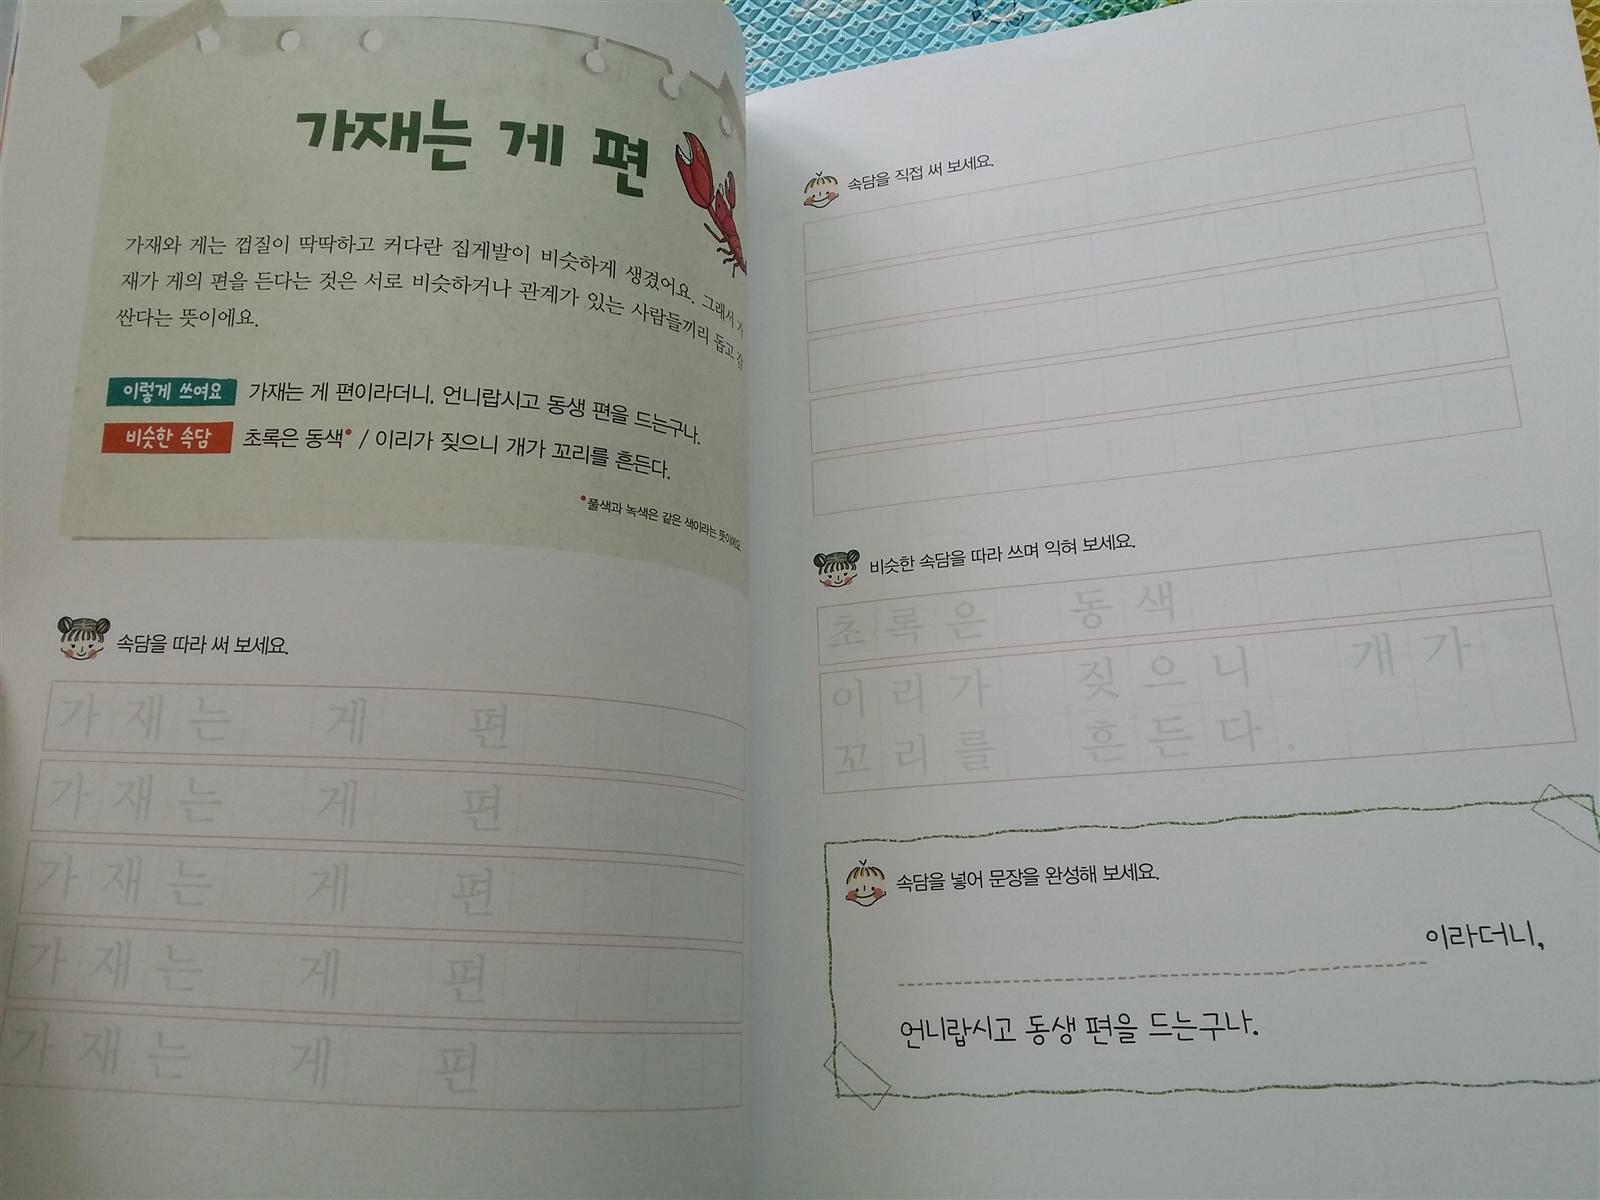 가재는 게 편
가재와 게는 껍질이 딱딱하고 커다란 집게발이 비슷하게 생겼어요. 그래서 가
재가 게의 편을 든다는 것은 서로 비슷하거나 관계가 있는 사람들끼리 돕고 감
싼다는 뜻이에요.
이렇게 쓰여요 가재는 게 편이라더니, 언니랍시고 동생 편을 드는구나.
비슷한 속담 초록은 동색* / 이리가 짖으니 개가 꼬리를 흔든다.
*풀색과 녹색은 같은 색이라는 뜻이에요
속담을 따라 써 보세요.
가재는 게 편
가재는 게 편
가재는 게 편
가재는 게 편
가재는 게 편
속담을 직접 써 보세요.
비슷한 속담을 따라 쓰며 익혀 보세요.
초록은 동색
이리가 짖으니 개가
꼬리를 흔든다.
속담을 넣어 문장을 완성해 보세요.
이라더니,
언니랍시고 동생 편을 드는구나.